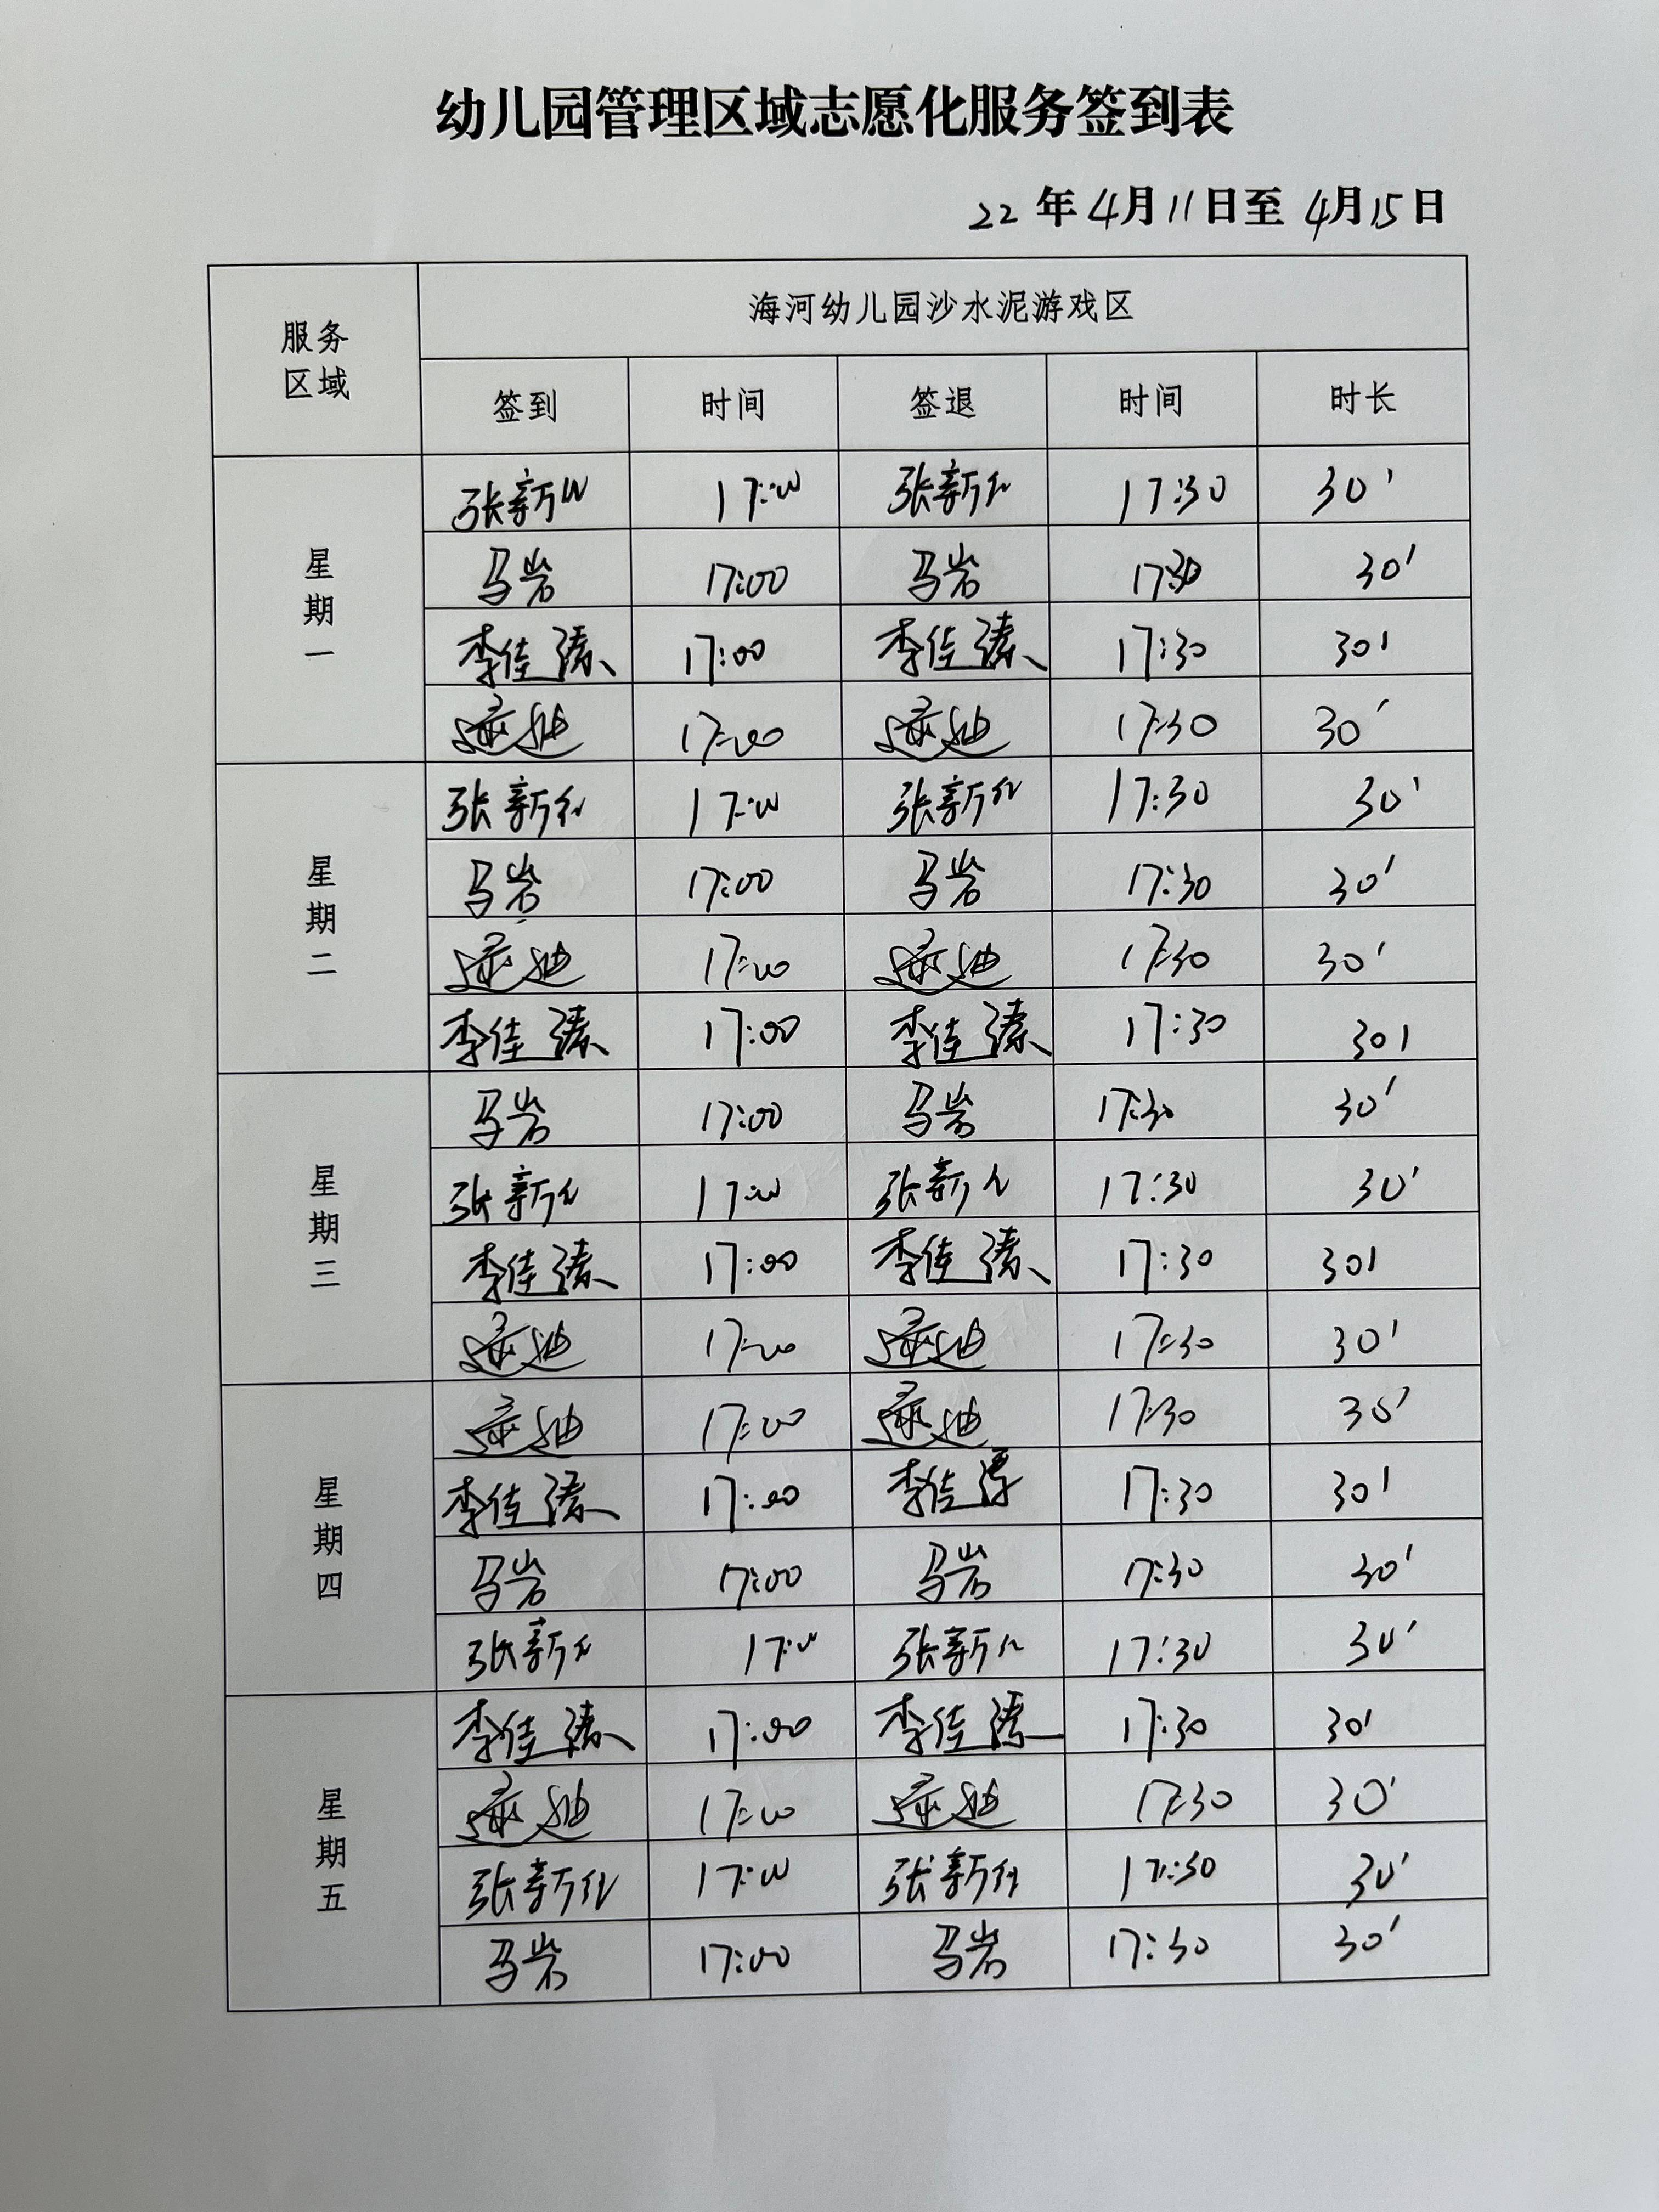 幼儿园管理区域志愿化服务签到表
22 年 4月 11日至 4月15日
服务区域 海河幼儿园沙水泥游戏区
签到 时间 签退 时间 时长
星期一
张新 17:00 张新 17:30 30'
马岩 17:00 马岩 17:30 30'
李佳 17:00 李佳 17:30 30'
17:00 17:30 30'
星期二
张新红 17:00 张新红 17:30 30'
马岩 17:00 马岩 17:30 30'
17:00 17:30 30'
李佳 17:00 李佳 17:30 30'
星期三
马岩 17:00 马岩 17:30 30'
张新 17:00 张新 17:30 30'
李佳 17:00 李佳 17:30 30'
17:00 17:30 30'
星期四
17:00 17:30 30'
李佳 17:00 李佳 17:30 30'
马岩 17:00 马岩 17:30 30'
张新 17:00 张新 17:30 30'
星期五
李佳 17:00 李佳 17:30 30'
17:00 17:30 30'
张新红 17:00 张新红 17:30 30'
马岩 17:00 马岩 17:30 30'